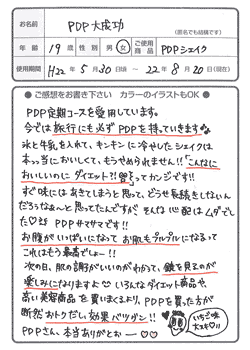 お名前 PDP大成功
(匿名でも結構です)
年齢 19歳 性別 男・女 ご使用商品 PDPシェイク
使用期間 H22年5月30日頃〜22年8月20(現在)
●ご感想をお書き下さい カラーのイラストもOK●
PDP定期コースを愛用しています。
今では旅行にも必ずPDPを持っていきます
氷と牛乳を入れて、キンキンに冷やしたシェイクは
本っ当においしくて、もうやめられません!!「こんなに
おいしいのにダイエット?!」ってカンジです!!
すぐ味にはあきてしまうと思って、どうせ長続きしないん
だろうなぁ〜と思ってたんですが、そんな心配はムダでし
た PDPサマサマです!!
お腹がいっぱいになってお肌もプルプルになるって
これはもう最高でしょー!!
次の日、肌の調子がいいのがわかって、鏡を見るのが
楽しみになりますよ いろんなダイエット商品や、
高い美容商品を買いまくるより、PDPを買った方が
断然おトクだし、効果バツグン!!
PDPさん、本当ありがとおー♡♡
いちご味
大スキ